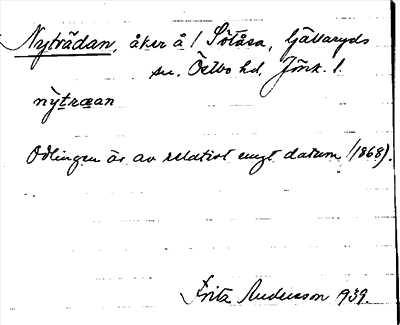 Nyträdan, åker å 1 Sötåsa, Gällaryds
sn. Östbo hd. Jönk. l.
nytræan
Odlingen är av relativt ungt datum (1868).
Fritz Andersson 1939.